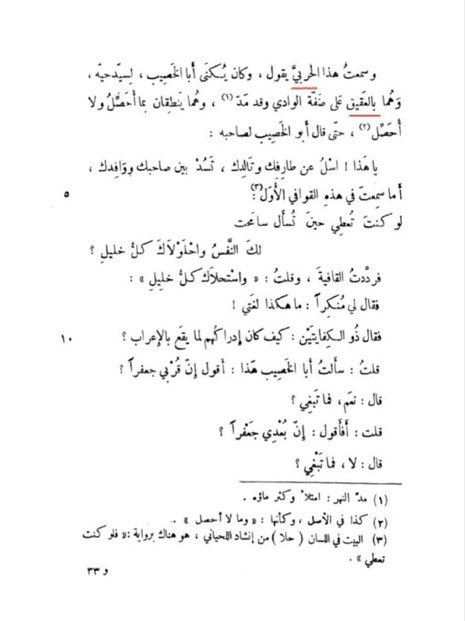 وسمعتُ هذا الحربيَّ يقول ، وكان يُكنَى أبا الخَصيب ، لِسيّدحيّه ،
وَهُما بالعَقيق على ضَفّة الوادي وقد مَدّ (١) ، وهُما يَنطِقان بما أُحَصِّلُ ولا
أُحَصِّل (٢) ، حتّى قال أبو الخَصيب لصاحبه :
يا هَذا ! اسْلُ عن طارِفِك وتَالِدك ، تَسُدْ بين صاحبك ووَافِدك ،
٥ أَما سمِعتَ في هذهِ القَوافي الأُوَل(٣)؟
لو كنتَ تُعطِي حينَ تُسأَل سامَحت
لكَ النَّفْسُ واحْلَوْلاَكَ كلُّ خليلِ ؟
فردَّدتُ القافيةَ ، وقلتُ : « واسْتحلاَك كلُّ خليلِ » :
فقال لي مُنكِراً : ما هكذا لغَتي !
١٠ فقال ذُو الكِفايتَيْن : كيف كان إدراكُهم لما يقَع بالإعراب ؟
قلتُ : سألتُ أبا الخَصيب هَذا : أقول إنّ قُرْبي جعفراً ؟
قال : نعَم ، فما تَبغِي ؟
قلت : أفَأقول : إنّ بُعْدِي جَعْفراً ؟
قال : لا ، فما تَبْغي ؟
(١) مدّ النهر : امتلأ وكثر ماؤه .
(٢) كذا في الأصل ، وكأنها : « وما لا أحصل » .
(٣) البيت في اللسان ( حلا ) من إنشاد اللحياني ، هو هناك برواية : « فلو كنت
تعطي » .
و ٣٣